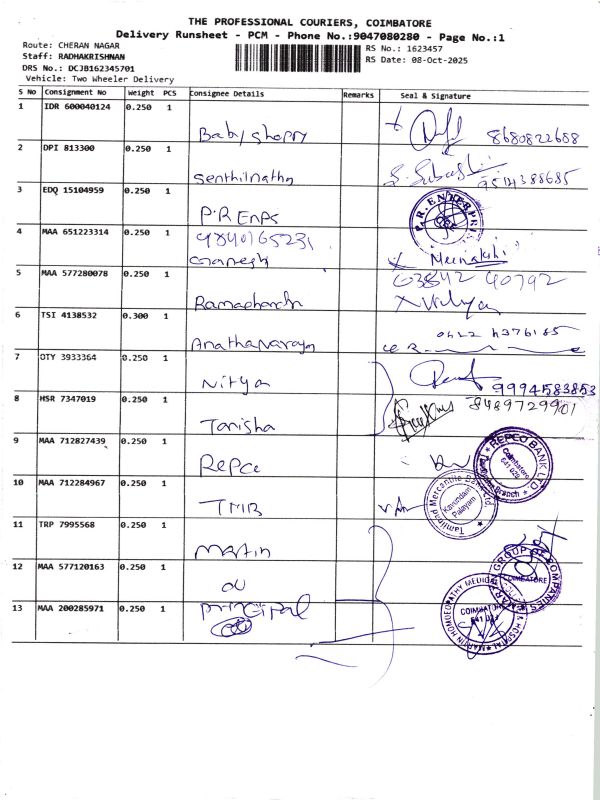 THE PROFESSIONAL COURIERS, COIMBATORE
Delivery Runsheet - PCM - Phone No.:9047080280 - Page No.:1
Route: CHERAN NAGAR
RS No.: 1623457
Staff: RADHAKRISHNAN
RS Date: 08-Oct-2025
DRS No.: DCJB162345701
Vehicle: Two Wheeler Delivery
S No Consignment No Weight PCS Consignee Details Remarks Seal & Signature
1 IDR 600040124 0.250 1
Baby shoppy 8680822688
2 DPI 813300 0.250 1
Senthilnathan 9514388685
3 EDQ 15104959 0.250 1
P.R Enps P.R. ENTERPRI
4 MAA 651223314 0.250 1
9840165231
Ganesh Meenakshi
5 MAA 577280078 0.250 1
63842 40792
Ramachandra Vidya
6 TSI 4138532 0.300 1
Anathanarayan
7 OTY 3933364 0.250 1
Nitya 9994583853
8 HSR 7347019 0.250 1
8489729901
Tanisha
9 MAA 712827439 0.250 1
Repco REPCO BANK LTD Coimbatore
10 MAA 712284967 0.250 1
TMB Tamilnad Mercantile Bank Ltd. Kavundam Palayam
11 TRP 7995568 0.250 1
Martin
12 MAA 577120163 0.250 1
GROUP OF COMPANIES COIMBATORE
13 MAA 200285971 0.250 1
Principal MARTIN HOMOEOPATHY MEDICAL & HOSPITAL COIMBATORE